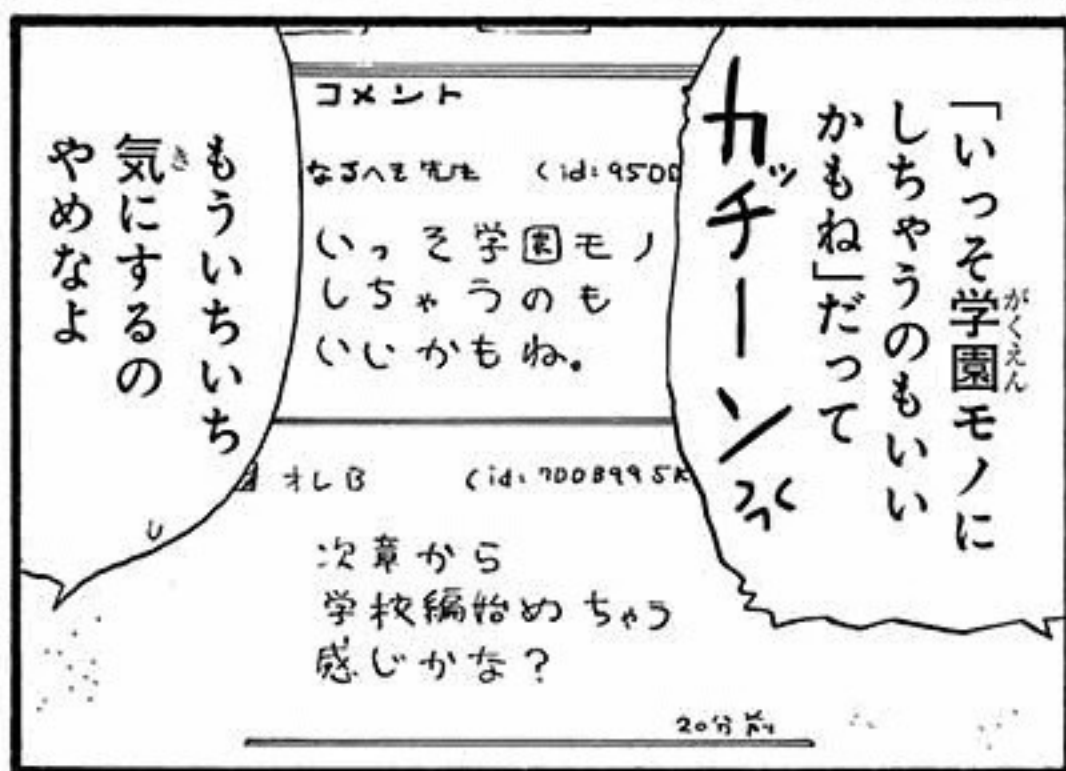 「いっそ学園モノに
しちゃうのもいい
かもね」だって
カッチーン
コメント
なるへそ先生 (id:9500
いっそ学園モノ
しちゃうのも
いいかもね。
オレB (id:7008995K
次章から
学校編始めちゃう
感じかな?
20分前
もういちいち
気にするの
やめなよ